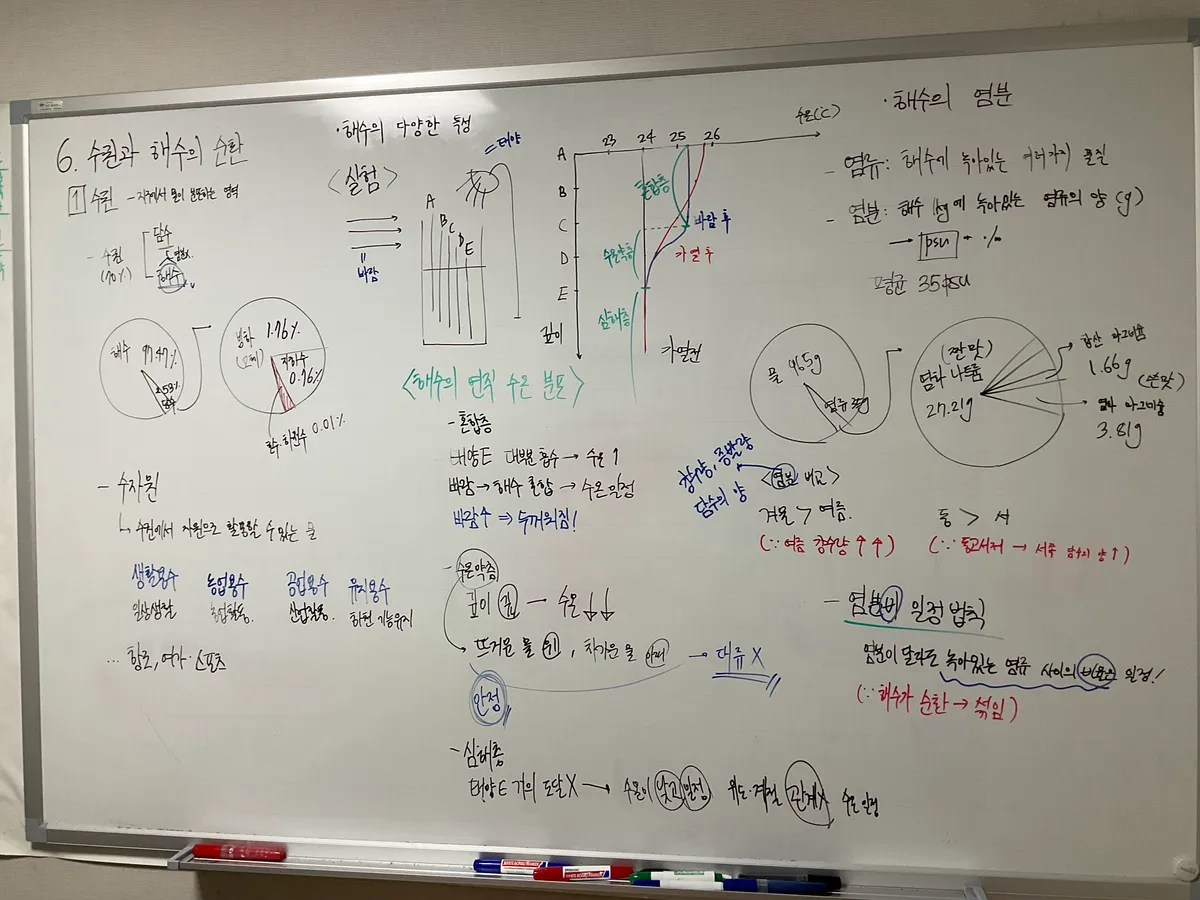 6. 수권과 해수의 순환
1 수권 - 지구에서 물이 분포하는 영역
- 수권
(70%)
담수
염분 x
해수
해수 97.47%
2.53%
담수
빙하 1.76%
(고체)
지하수
0.76%
호수·하천수 0.01%
- 수자원
↳ 수권에서 자원으로 활용할 수 있는 물
생활용수 농업용수 공업용수 유지용수
일상생활 농업활동. 산업활동. 하천 기능유지
... 항조, 여가·스포츠
· 해수의 다양한 특성
<실험>
= 태양
바람
A
B
C
D
E
수온(℃)
23 24 25 26
A
B
C
D
E
깊이
혼합층
수온약층
심해층
바람 후
가열 후
가열전
<해수의 연직 수온 분포>
- 혼합층
태양E 대부분 흡수 → 수온 ↑
바람 → 해수 혼합 → 수온 일정
바람↑ ⇒ 두꺼워짐!
- 수온약층
깊이 깊 → 수온 ↓↓
뜨거운 물 위, 차가운 물 아래 → 대류 X
안정
- 심해층
태양E 거의 도달X → 수온이 낮고 일정 위도·계절 관계X 수온 일정
· 해수의 염분
- 염류: 해수에 녹아있는 여러가지 물질
- 염분: 해수 1kg에 녹아있는 염류의 양 (g)
→ psu = ‰
평균 35psu
물 965g
염류 35g
(짠맛)
염화 나트륨
27.21g
황산 마그네슘
1.66g
(쓴맛)
염화 마그네슘
3.81g
강수량, 증발량
담수의 양
<염분 비교>
겨울 > 여름.
(∵ 여름 강수량 ↑↑)
동 > 서
(∵ 동고서저 → 서쪽 담수의 양↑)
- 염분비 일정 법칙
염분이 달라도 녹아있는 염류 사이의 비율은 일정!
(∵ 해수가 순환 → 섞임)